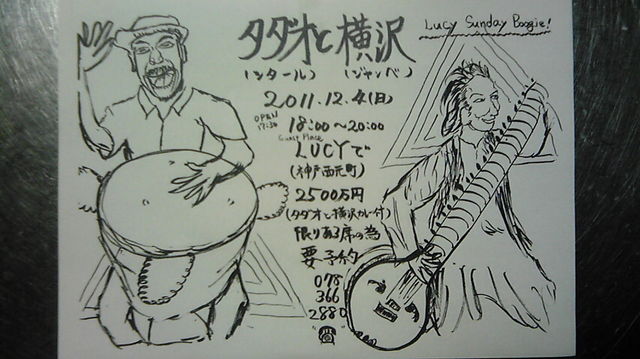 Lucy Sunday Boogie!
タダオと横沢
(シタール) (ジャンベ)
2011.12.4(日)
OPEN
17:30
18:00〜20:00
LUCYで
(神戸西元町)
2500万円
(タダオと横沢カレー付)
限りある席の為
要予約
078
366
2880